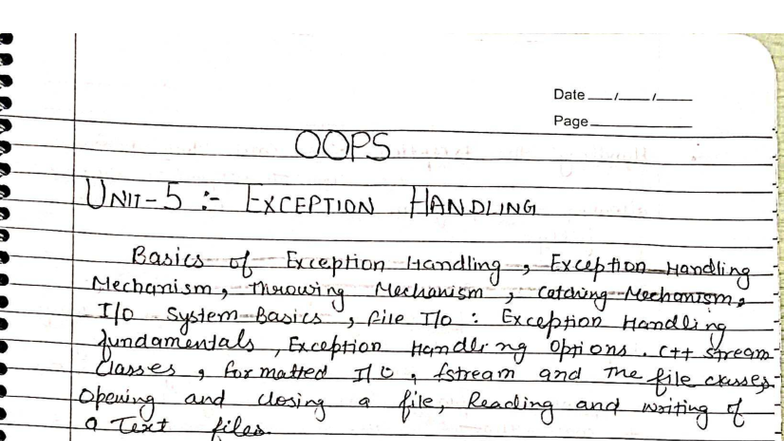 Date __/__/__
Page ________
OOPS
UNIT-5 :- EXCEPTION HANDLING
Basics of Exception Handling, Exception Handling
Mechanism, Throwing Mechanism, Catching Mechanism,
I/O System Basics, File I/O : Exception Handling
fundamentals, Exception Handling Options. C++ stream
Classes, Formatted I/O, fstream and the file classes,
Opening and closing a file, Reading and writing of
a Text files.